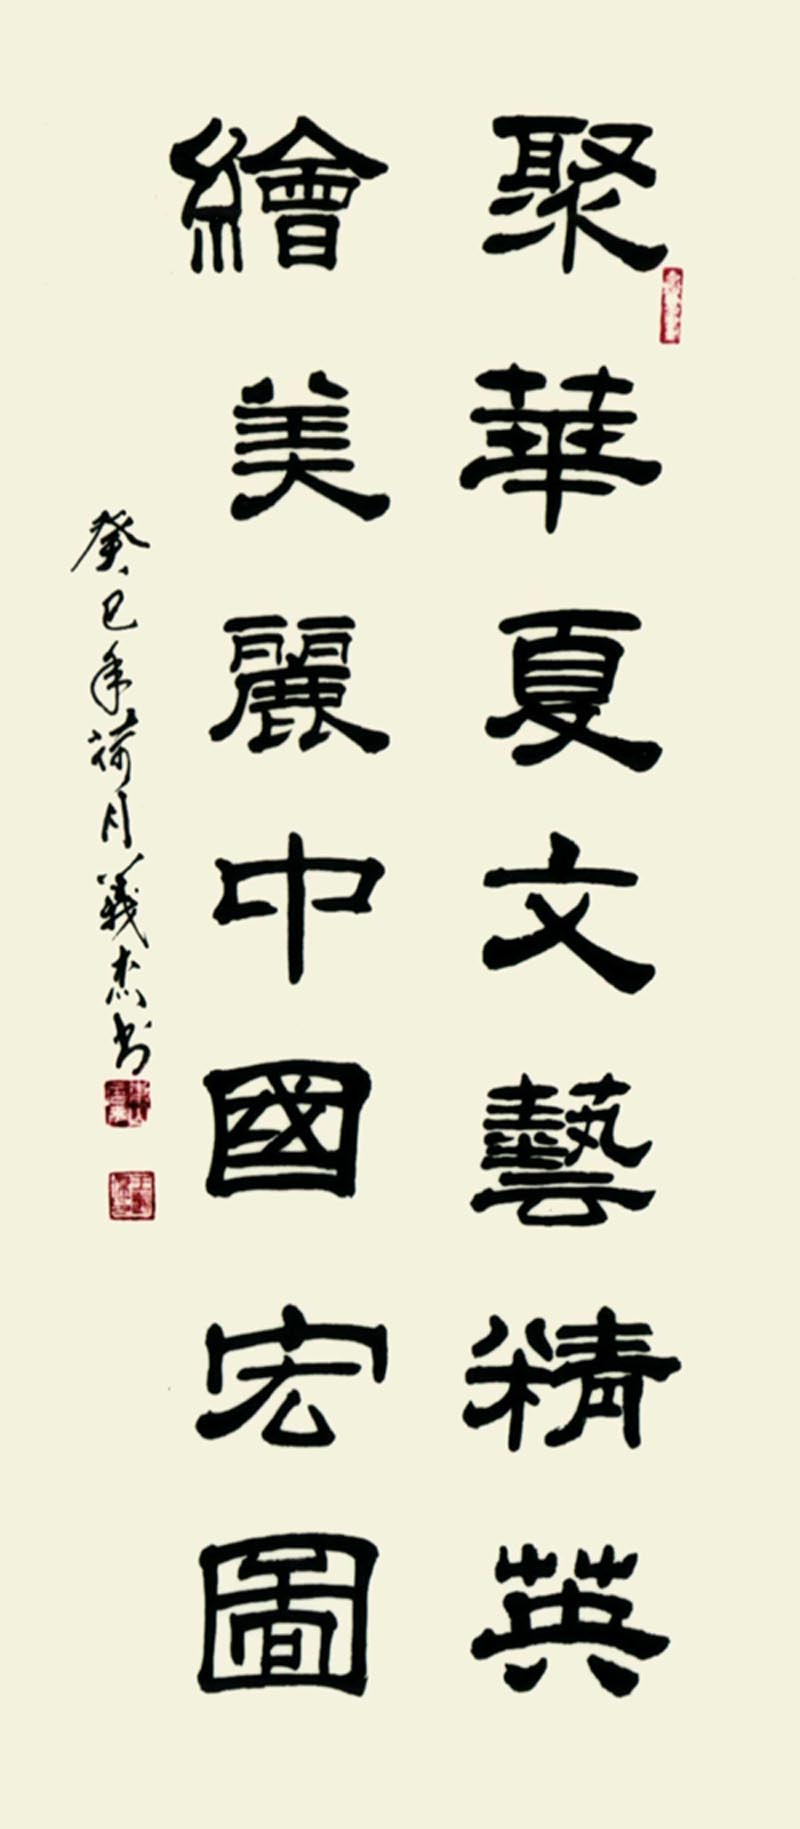 聚華夏文藝精英
繪美麗中國宏圖
癸巳年荷月義杰书